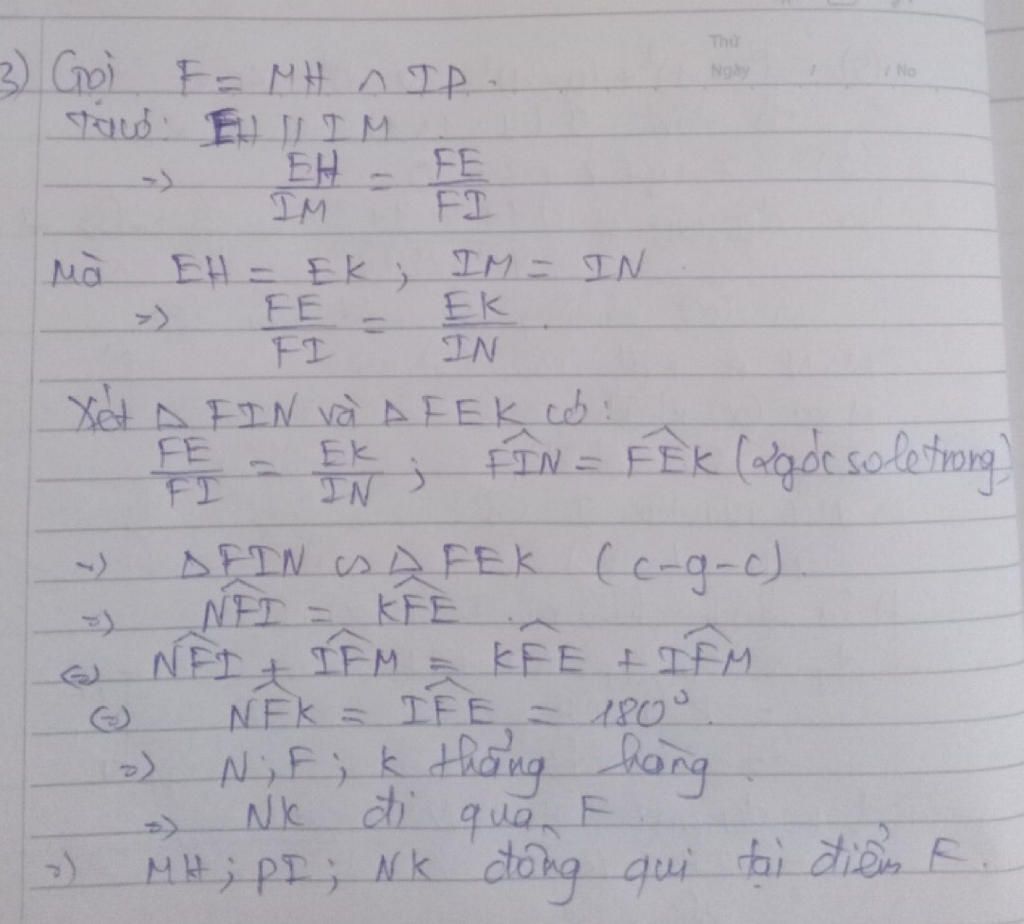 Thứ
Ngày / / No
3) Gọi F = MH ∩ IP.
Ta có: EH // IM
=> EH/IM = FE/FI
Mà EH = EK ; IM = IN
=> FE/FI = EK/IN.
Xét Δ FIN và Δ FEK có:
FE/FI = EK/IN ; \widehat{FIN} = \widehat{FEK} (2 góc so le trong)
=> Δ FIN ∽ Δ FEK (c-g-c).
=> \widehat{NFI} = \widehat{KFE}.
<=> \widehat{NFI} + \widehat{IFM} = \widehat{KFE} + \widehat{IFM}
<=> \widehat{NFK} = \widehat{IFE} = 180°.
=> N ; F ; K thẳng hàng.
=> NK đi qua F.
=> MH ; PI ; NK đồng qui tại điểm F.